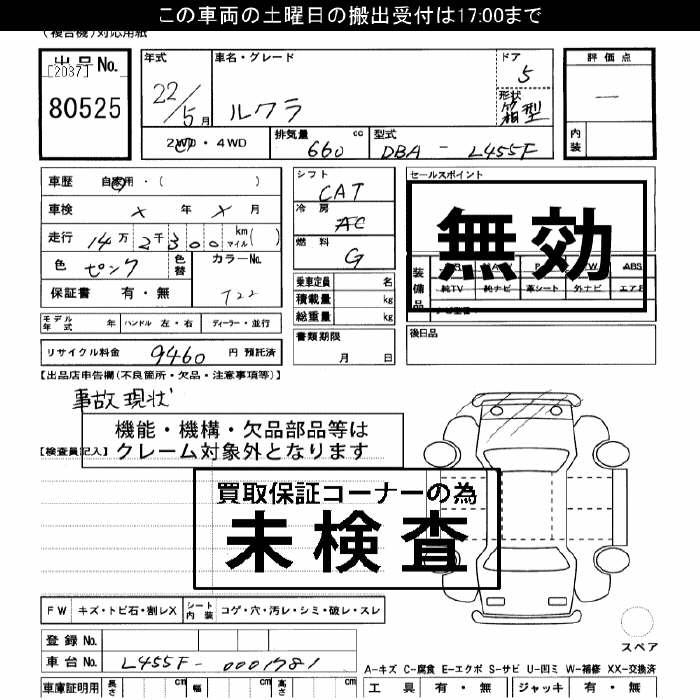 この車両の土曜日の搬出受付は17:00まで
(複合機)対応用紙
出品No.
[2037]
80525
年式
22/5月
車名・グレード
ルクラ
ドア
5
形状
箱型
評価点
―
内装
2WD・4WD
排気量 cc
660
型式
DBA - L455F
車歴 自家用・( )
車検 × 年 × 月
走行 14万2千300 km マイル( )
色 ピンク
色替
カラーNo.
T22
保証書 有・無
シフト
CAT
冷房
AC
燃料
G
乗車定員 名
積載量 kg
総重量 kg
セールスポイント
無効
装備品
ABS
純TV 純ナビ 革シート 外ナビ エアB
モデル年式 年 ハンドル 左・右 ディーラー・並行
書類期限
月 日
後日品
リサイクル料金 9460 円 預託済
【出品店申告欄(不良箇所・欠品・注意事項等)】
事故現状
機能・機構・欠品部品等は
クレーム対象外となります
【検査員記入】
買取保証コーナーの為
未検査
FW キズ・トビ石・割レX シート内装 コゲ・穴・汚レ・シミ・破レ・スレ
スペア
登録No.
車台No. L455F-0001781
A-キズ C-腐食 E-エクボ S-サビ U-凹ミ W-補修 XX-交換済
車庫証明用 長さ cm 幅 cm 高さ cm
工具 有・無 ジャッキ 有・無